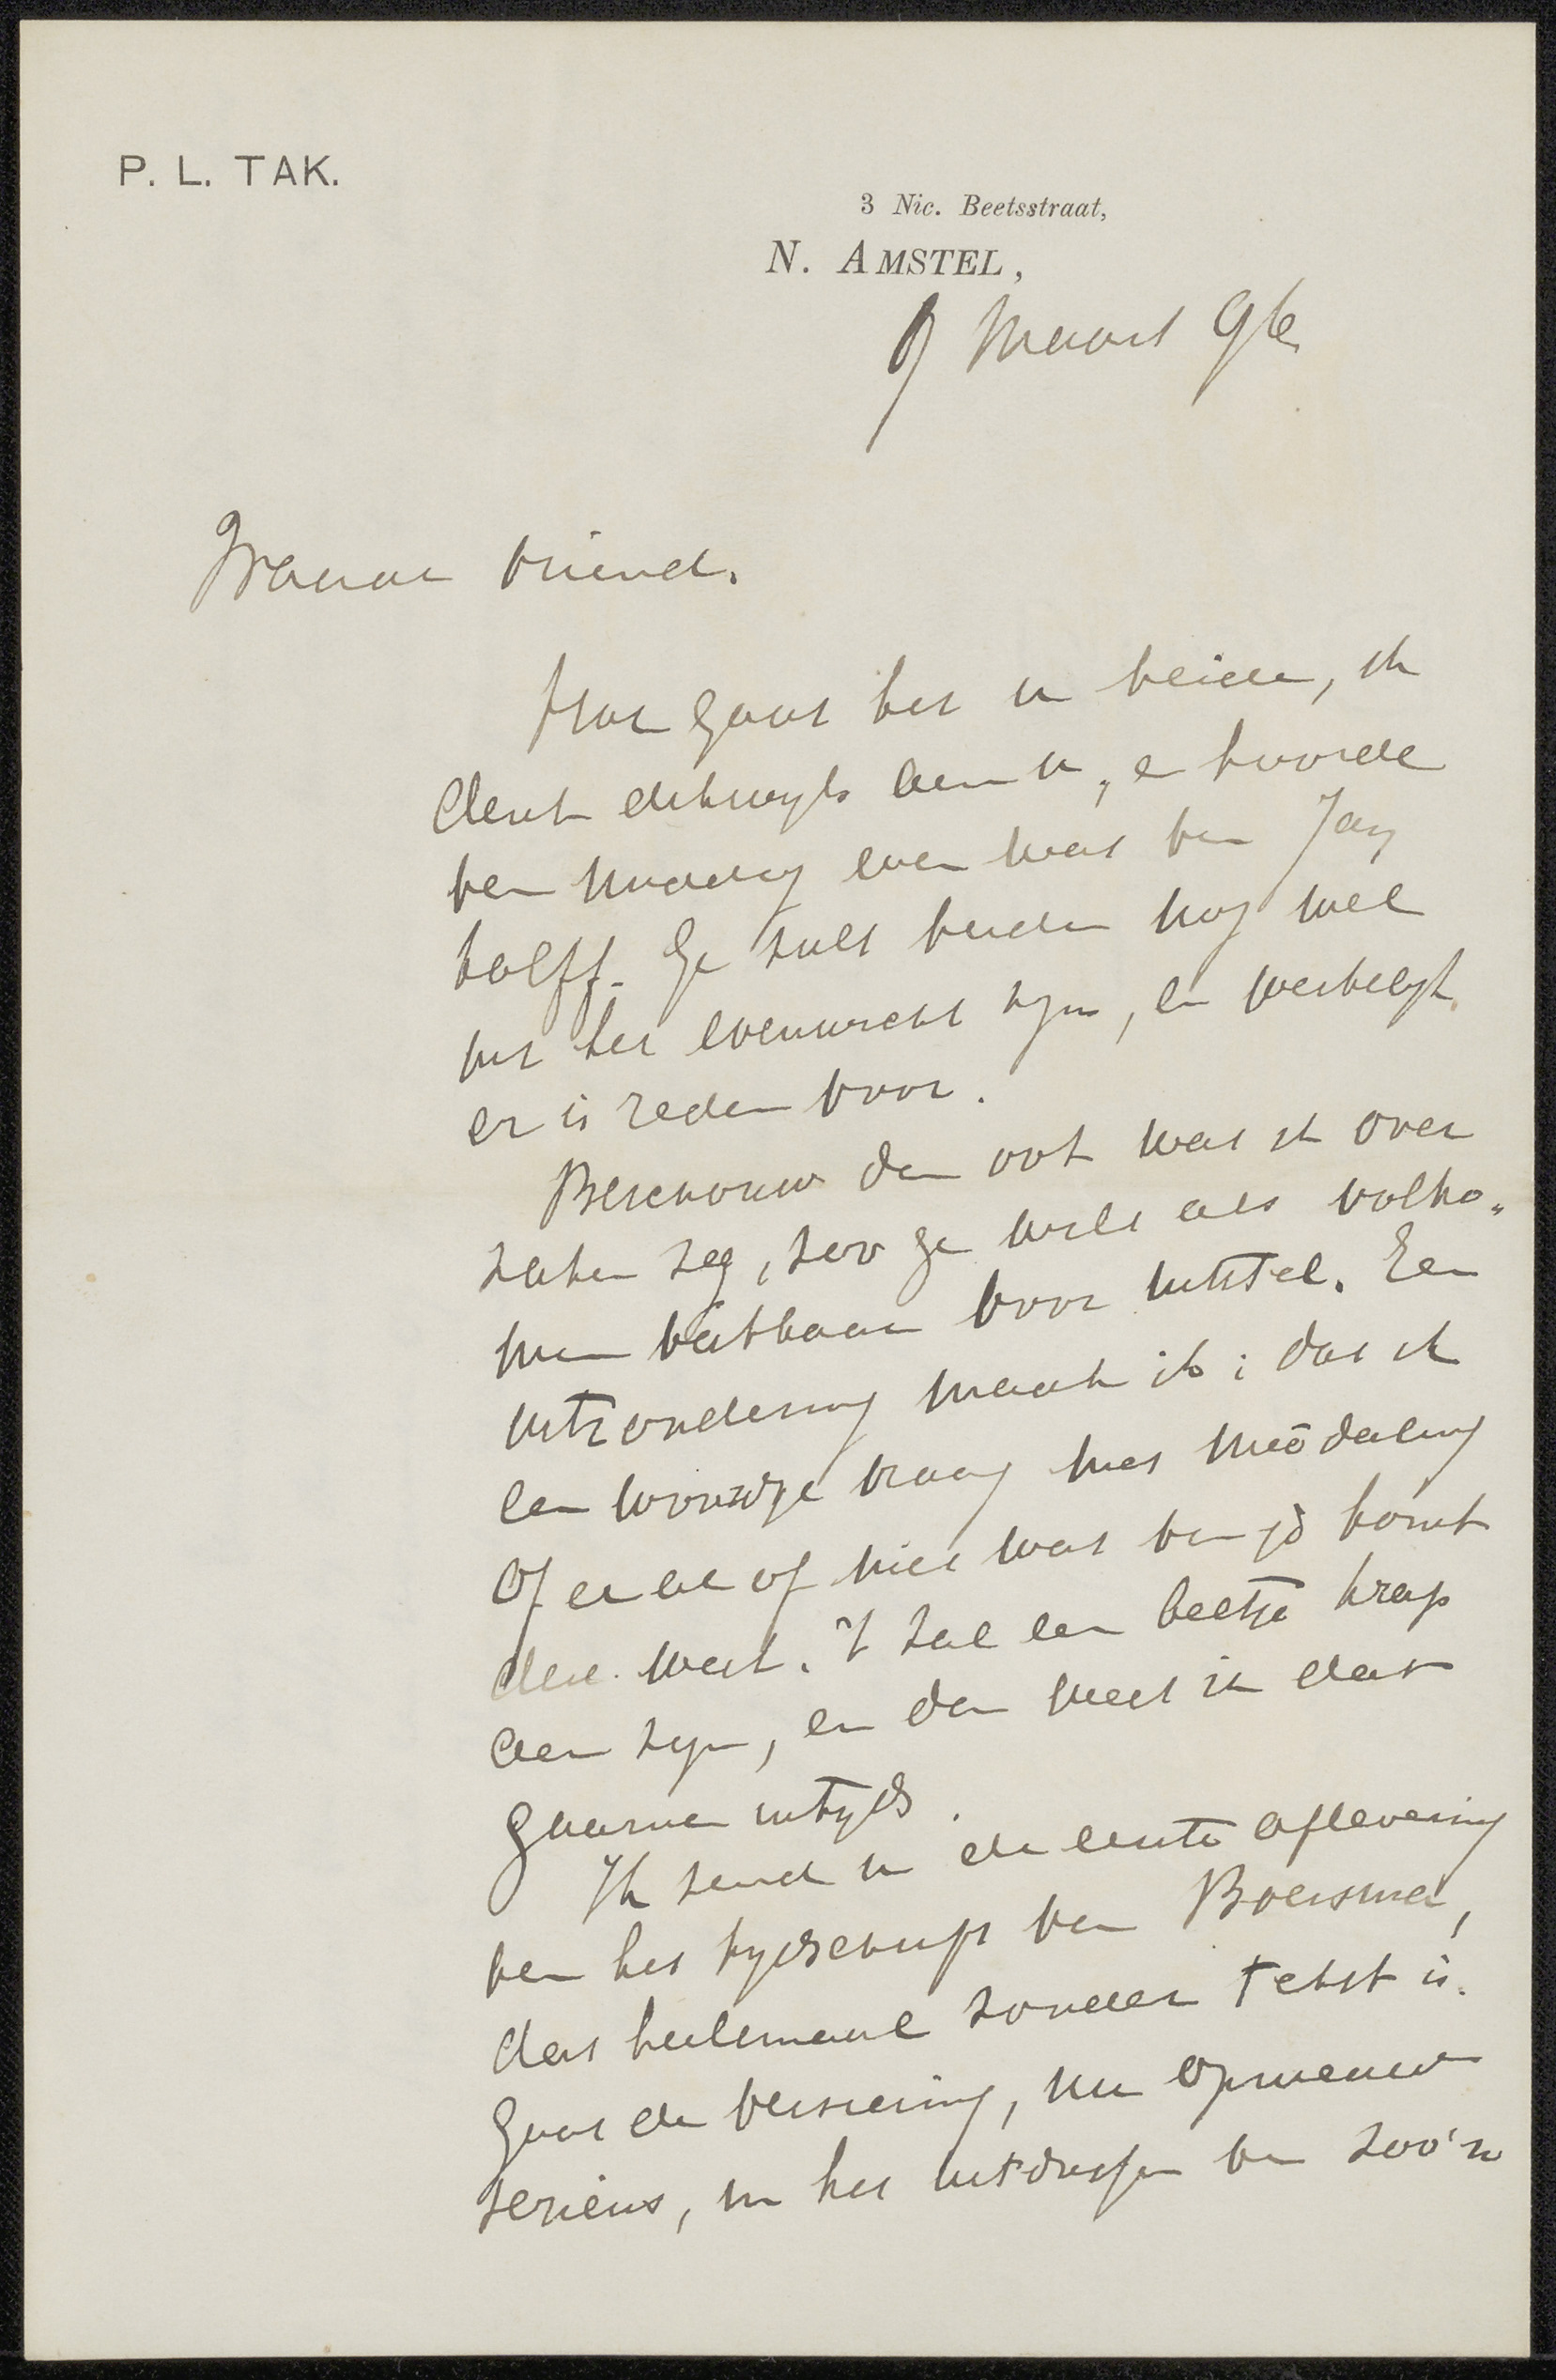 P. L. TAK.
3 Nic. Beetsstraat,
N. AMSTEL,
9 Maart 96
Waarde vriend.
Hoe gaat het u beiden, ik
denk dikwyls aan u, en hoorde
van middag even wat van Jan
Kalff. Ge zult beiden nog wel
uit het evenwicht zyn, en werkelyk
er is reden voor.
Beschouw dan ook wat ik over
zaken zeg, zoo ge wilt als volko-
men vatbaar voor uitstel. Een
uitzondering maak ik: dat ik
een woordje vraag met meedeeling
of er al of niet wat van je komt
deze week. 't Zal een beetje krap
aan zyn, en dan weet ik dat
gaarne intyds.
Ik zend u de eerste aflevering
van het tydschrift van Boersma,
dat heelemaal zonder tekst is.
Gaat de versiering, nu opnieuw
serieus, in het uitdrossen van zoo'n